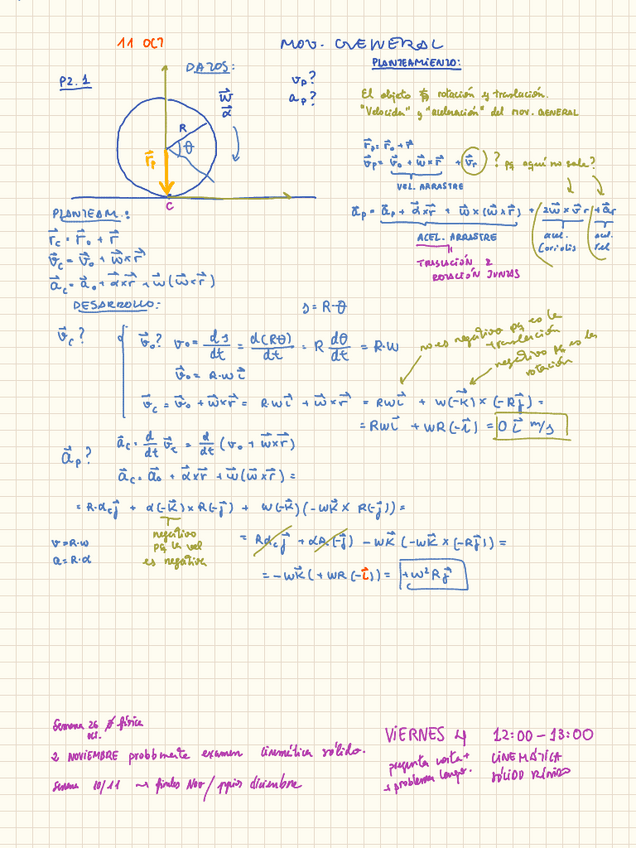 11 OCT
MOV. GENERAL
PZ. 1
DATOS:
R θ
w⃗
α⃗
r⃗p
C
v_p?
a_p?
PLANTEAMIENTO:
El objeto rotación y translación.
"Velocidad" y "aceleración" del MOV. GENERAL
r⃗p = r⃗o + r⃗
v⃗p = v⃗o + w⃗ x r⃗ + v⃗r ? pq aquí no sale?
VEL. ARRASTRE
a⃗p = a⃗p + α⃗ x r⃗ + w⃗ x (w⃗ x r⃗) + 2w⃗ x v⃗r + a⃗r
ACEL. ARRASTRE
acel. Coriolis
acel. rel
TRASLACIÓN Z
ROTACIÓN JUNTAS
PLANTEAM.:
r⃗c = r⃗o + r⃗
v⃗c = v⃗o + w⃗ x r⃗
a⃗c = a⃗o + α⃗ x r⃗ + w⃗ (w⃗ x r⃗)
DESARROLLO:
s = R·θ
v⃗c?
v⃗o? v_o = ds/dt = d(Rθ)/dt = R dθ/dt = R·w
v⃗o = R·w i⃗
no es negativo pq es la translación
negativo pq es la rotación
v⃗c = v⃗o + w⃗ x r⃗ = R·w i⃗ + w⃗ x r⃗ = Rw i⃗ + w(-k⃗) x (-R j⃗) =
= Rw i⃗ + wR(-i⃗) = 0 i⃗ m/s
a⃗p?
a⃗c = d/dt v⃗c = d/dt (v_o + w⃗ x r⃗)
a⃗c = a⃗o + α⃗ x r⃗ + w⃗ (w⃗ x r⃗) =
= R·α_c j⃗ + α(-k⃗) x R(-j⃗) + w(-k⃗) (-wk⃗ x R(-j⃗)) =
negativo
pq la vel
es negativa
v = R·w
a = R·α
= Rα_c j⃗ + αR(-j⃗) - wk⃗ (-wk⃗ x (-R j⃗)) =
= -wk⃗ (+wR(-i⃗)) = +w²R j⃗
Semana 26 oct. ∅ física
2 NOVIEMBRE probbmente examen cinemática sólido.
Semana 10/11 → finales Nov / ppios diciembre
VIERNES 4 12:00 - 13:00
pregunta corta +
+ problema largo.
CINEMÁTICA
SÓLIDO RÍGIDO